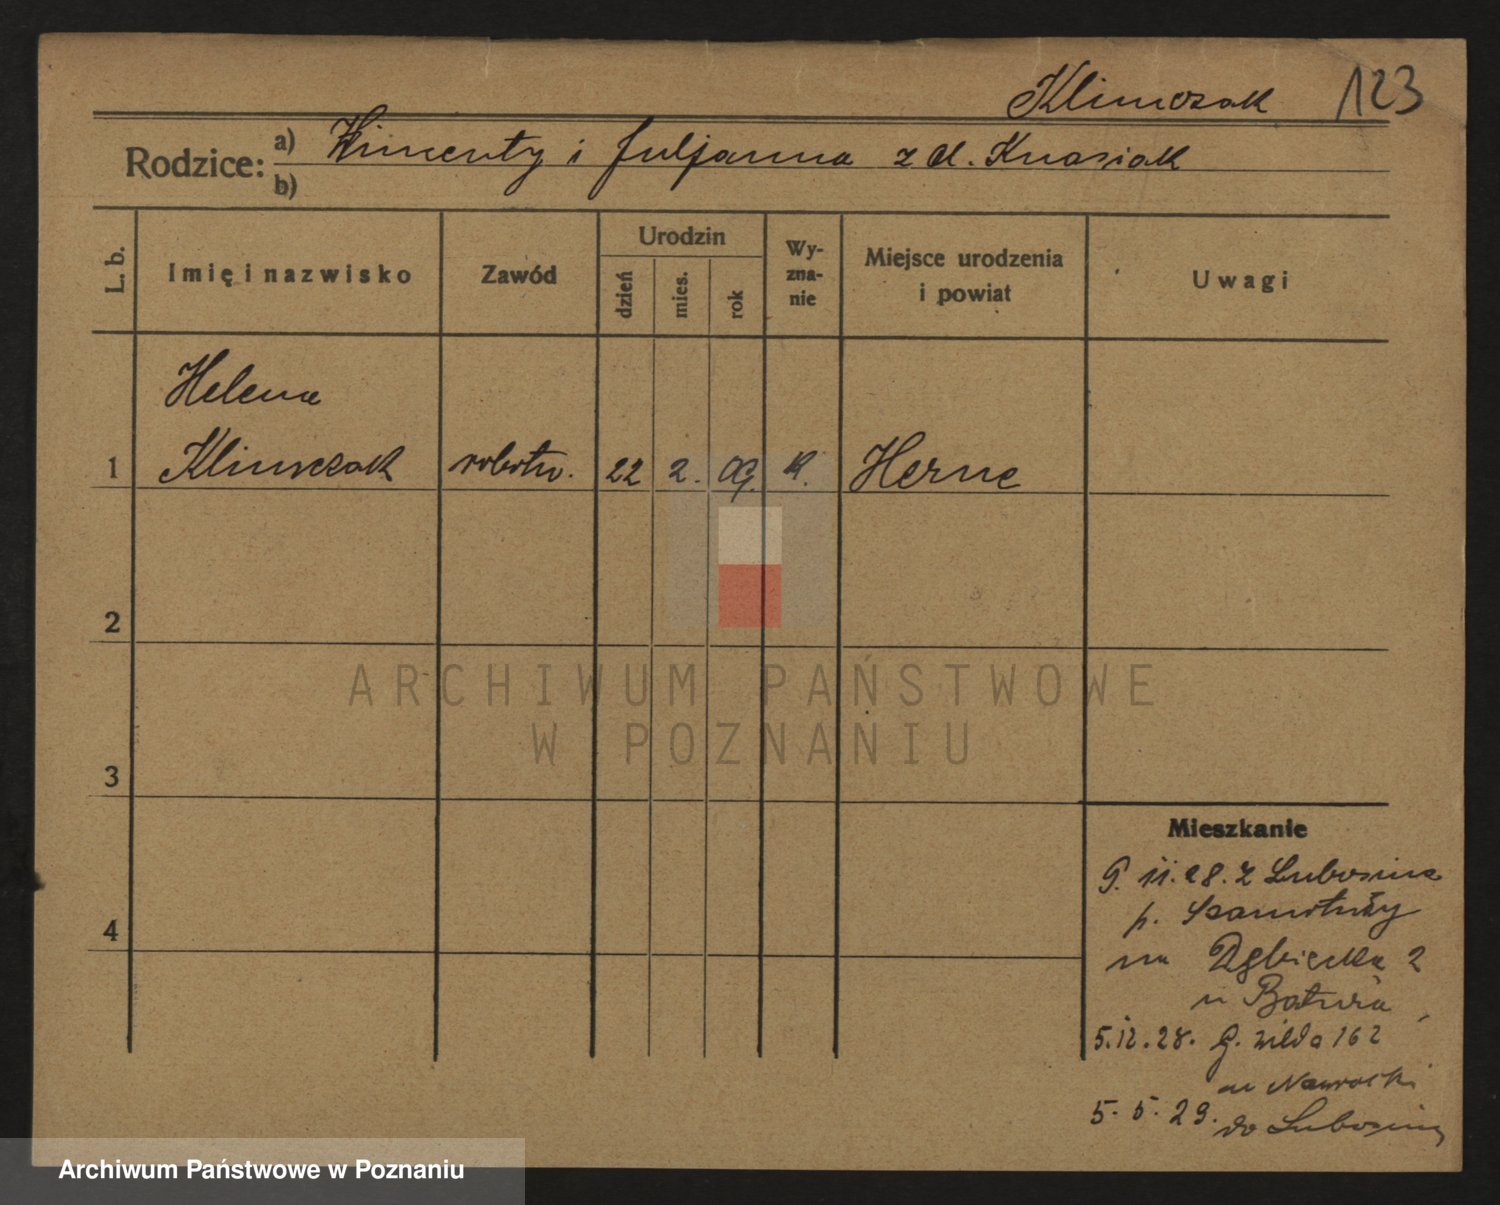 Klimczak 123
Rodzice: a) Wincenty i Juljanna z d. Knasiak
b)
L. b. Imię i nazwisko Zawód Urodzin dzień mies. rok Wy-zna-nie Miejsce urodzenia i powiat Uwagi
Helena
1 Klimczak robotn. 22 2. 09. k. Herne
2
3
4
Mieszkanie
9. 11. 28. z Lubosina
p. Szamotuły
na Dębiecka 2
u Batura
5. 12. 28. G. Wilda 162
u Nawrocki
5. 5. 29. do Lubosiny
ARCHIWUM PAŃSTWOWE
W POZNANIU
Archiwum Państwowe w Poznaniu